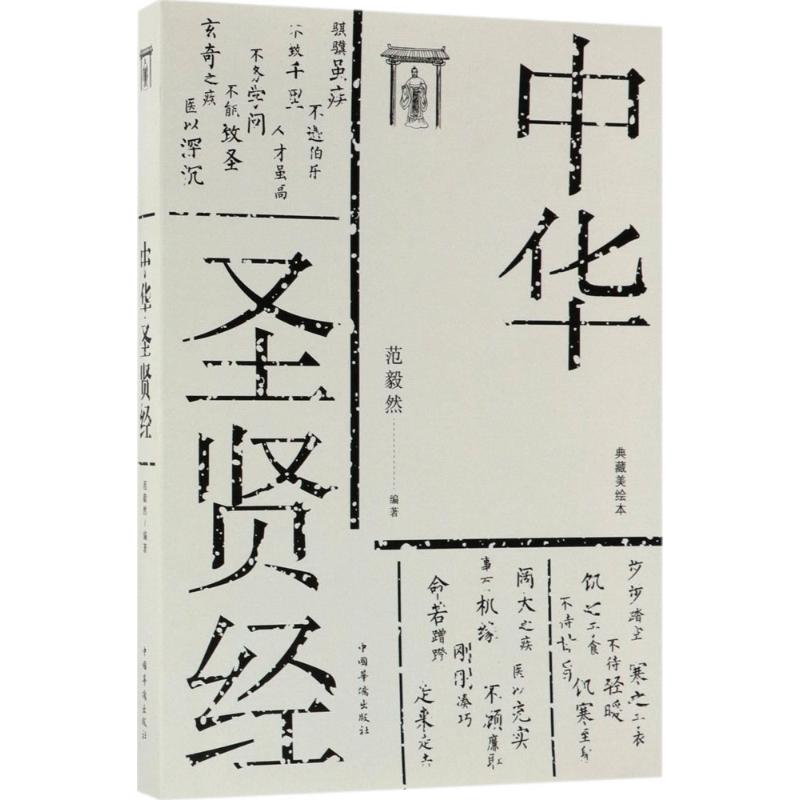 中华
圣贤经
范毅然
编著
典藏美绘本
中国华侨出版社
骐骥虽疾
不遇伯乐
不致千里
人才虽高
不务学问
不能致圣
玄奇之疾
医以深沉
步步踏空
寒之二衣
不待轻暖
饥之二食
不待甘旨
饥寒至身
不顾廉耻
阔大之疾
医以充实
事
机缘
刚刚凑巧
命若蹭蹬
走来走去
中华圣贤经
范毅然
编著
中国华侨出版社